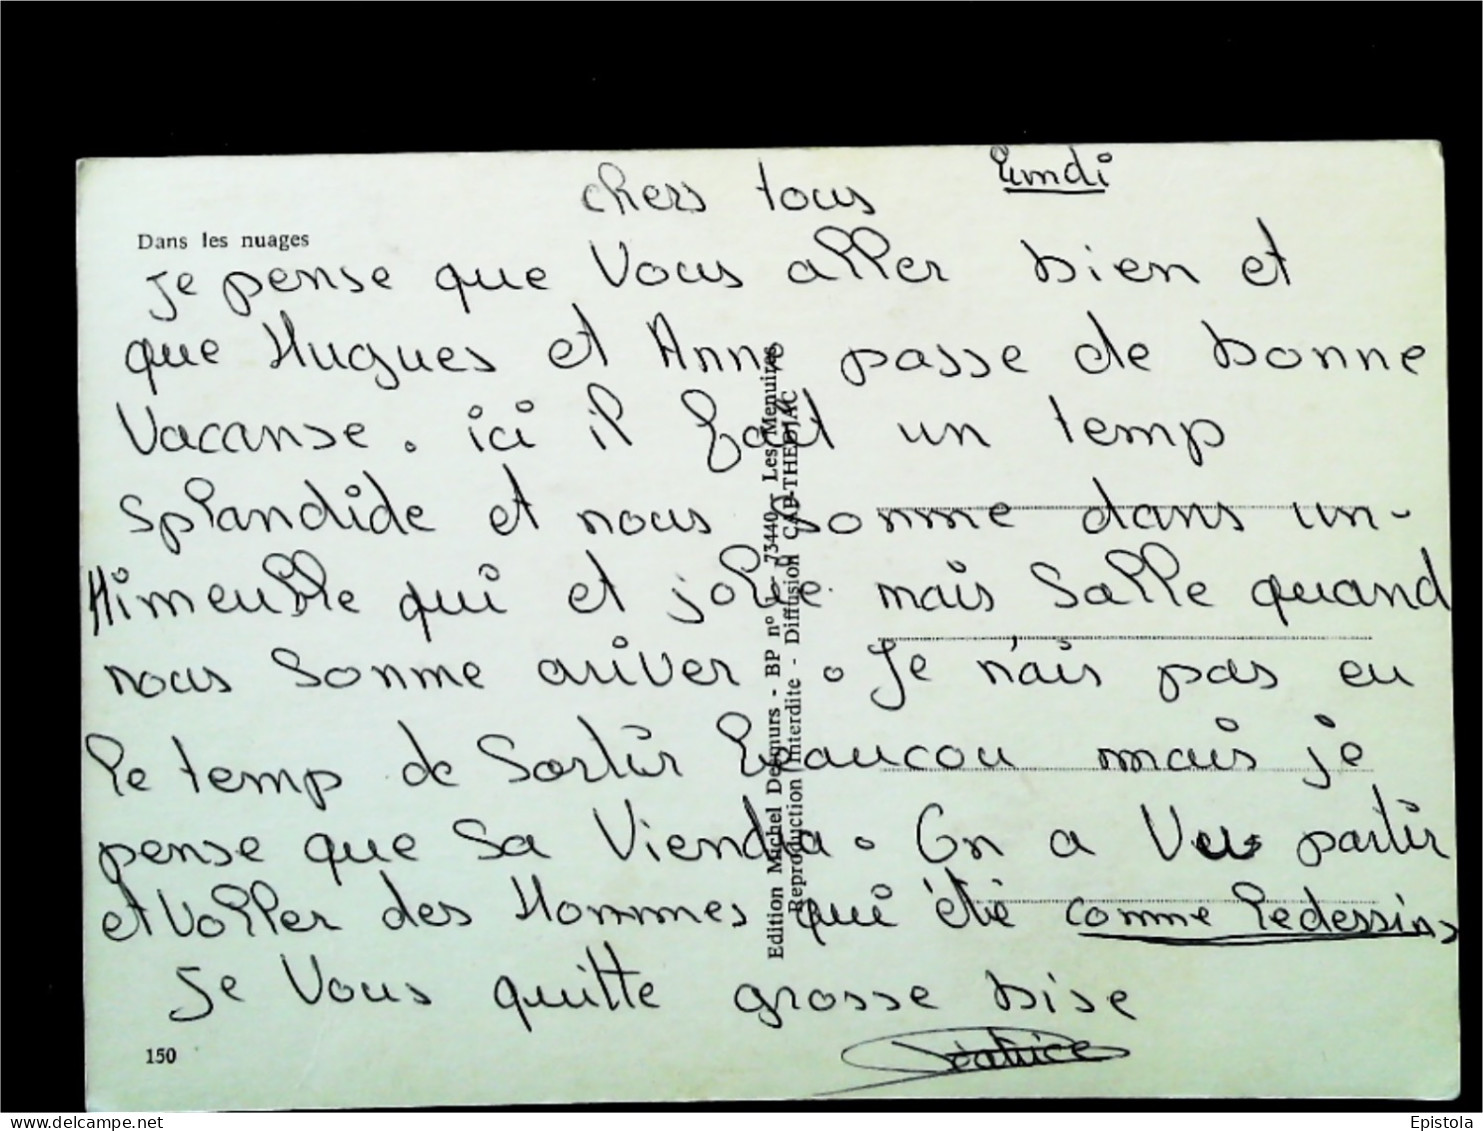 lundi
chers tous
Dans les nuages
je pense que Vous aller bien et
que Hugues et Anne passe de bonne
Vacanse. ici il fait un temp
splandide et nous somme dans un-
Himeuble qui et jolie mais Salle quand
nous Somme ariver. Je n'ais pas eu
le temp de Sortir beaucou mais je
pense que Sa Viendra. On a Vus partir
et Voller des Hommes qui été comme le dessins
Je Vous quitte grosse bise
Béatrice
150
Edition Michel Desmurs - BP n° 1 - 73440 - Les Menuires
Reproduction interdite - Diffusion CAP-THEOJAC
www.delcampe.net
Epistola